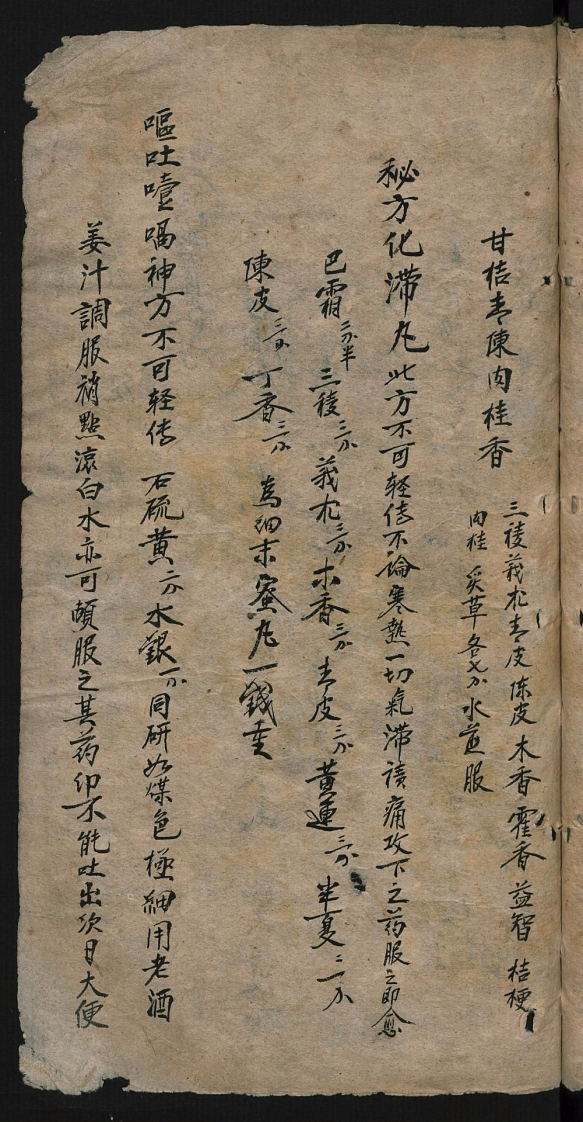 甘桔青陳肉桂香
三稜莪朮青皮陈皮木香霍香益智桔梗
肉桂炙草各七分水煎服
秘方化滯丸此方不可轻传不論寒熱一切氣滯積痛攻下之药服之即愈
巴霜二分半三稜三分莪朮三分木香三分青皮三分黃連三分半夏二分
陳皮三分丁香三分為細末蜜丸一錢重
嘔吐噎嗝神方不可轻传石硫黄二分水銀一分同研如煤色極細用老酒
姜汁調服稍點滾白水亦可頓服之其药印不能吐出次日大便